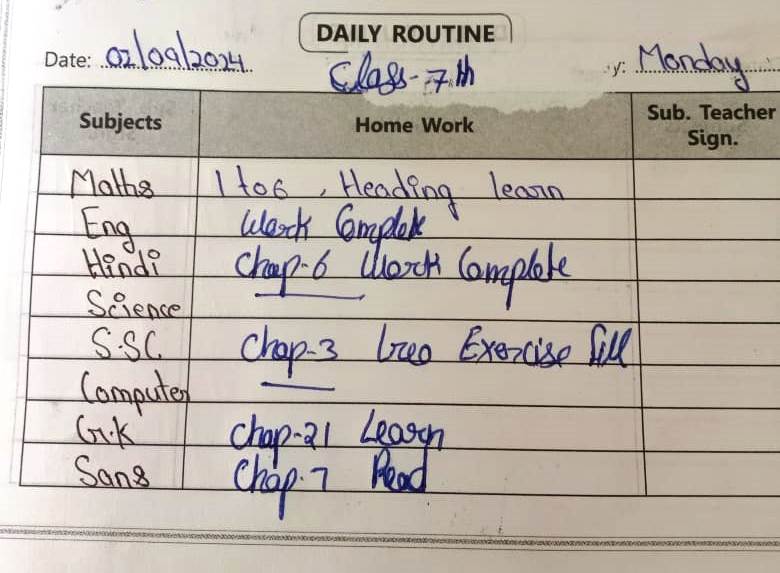 DAILY ROUTINE
Date: 02/09/2024 Class-7th y: Monday
Subjects Home Work Sub. Teacher Sign.
Maths 1 to 6, Heading learn
Eng Work Complete
Hindi Chap-6 Work Complete
Science
S.SC Chap-3 Exercise fill
Computer
G.K Chap-21 Learn
Sans Chap-7 Read